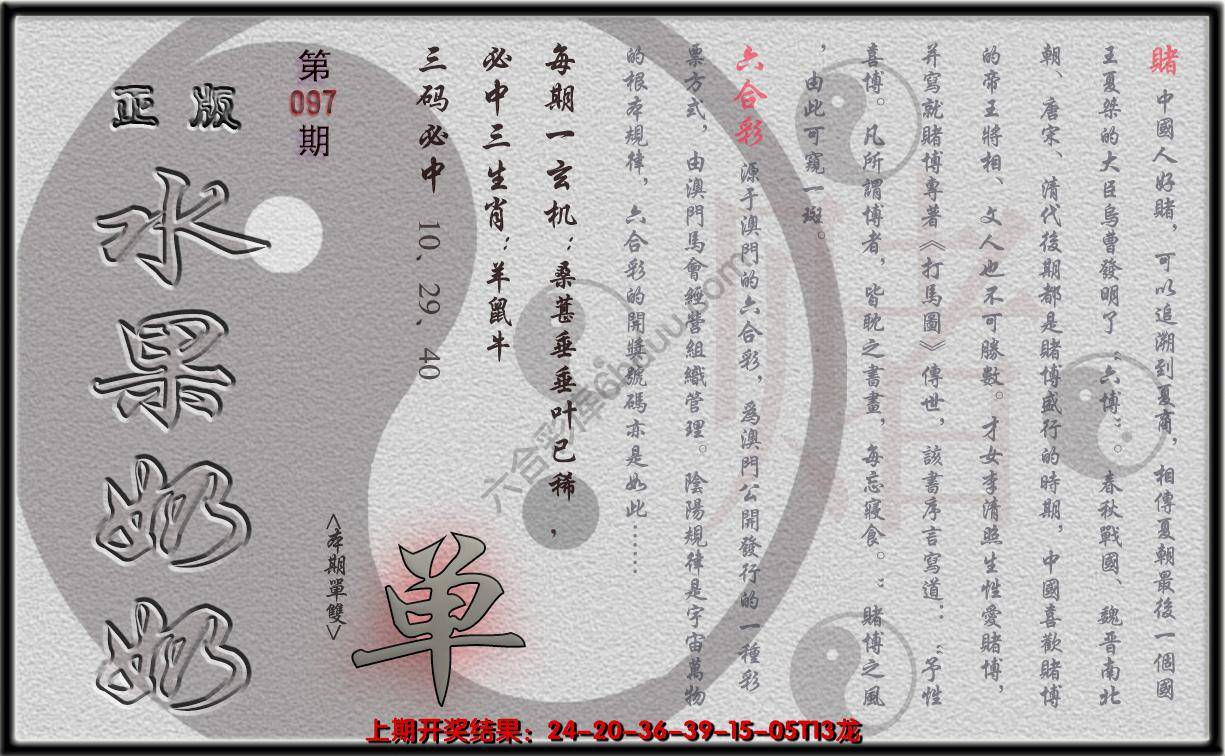 賭 中國人好賭，可以追溯到夏商，相傳夏朝最後一個國
王夏桀的大臣烏曹發明了“六博”。春秋戰國、魏晋南北
朝、唐宋、清代後期都是賭博盛行的時期，中國喜歡賭博
的帝王將相、文人也不可勝數。才女李清照生性愛賭博，
并寫就賭博專著《打馬圖》傳世，該書序言寫道：“予性
喜博。凡所謂博者，皆耽之書畫，每忘寢食。”賭博之風
，由此可窺一斑。
六合彩 源于澳門的六合彩，爲澳門公開發行的一種彩
票方式，由澳門馬會經營組織管理。陰陽規律是宇宙萬物
的根本規律，六合彩的開獎號碼亦是如此……
每期一玄机：桑葚垂垂叶已稀，
必中三生肖：羊鼠牛
三码必中 10、29、40
第
097
期
正版
水果奶奶
<本期單雙>
单
六合彩库6hduu.com
上期开奖结果：24-20-36-39-15-05T13龙